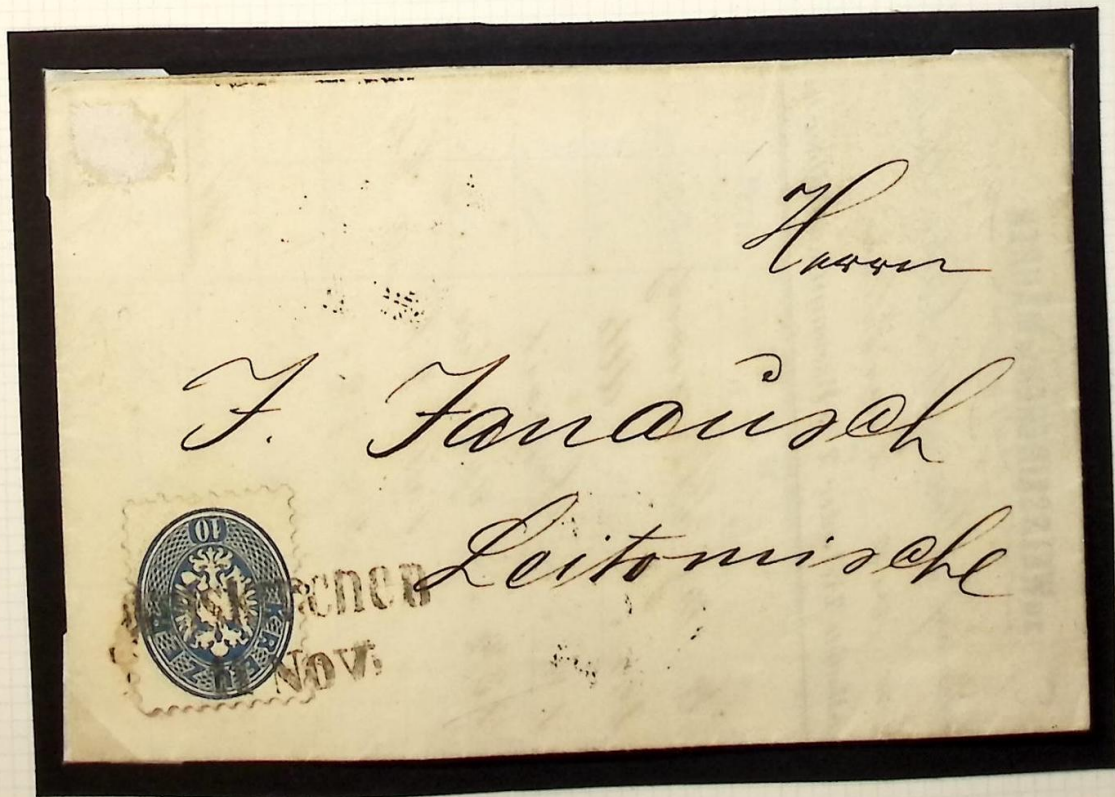 Herrn
J. Janausch
Leitomischl
10
KREUZER
11 Nov: